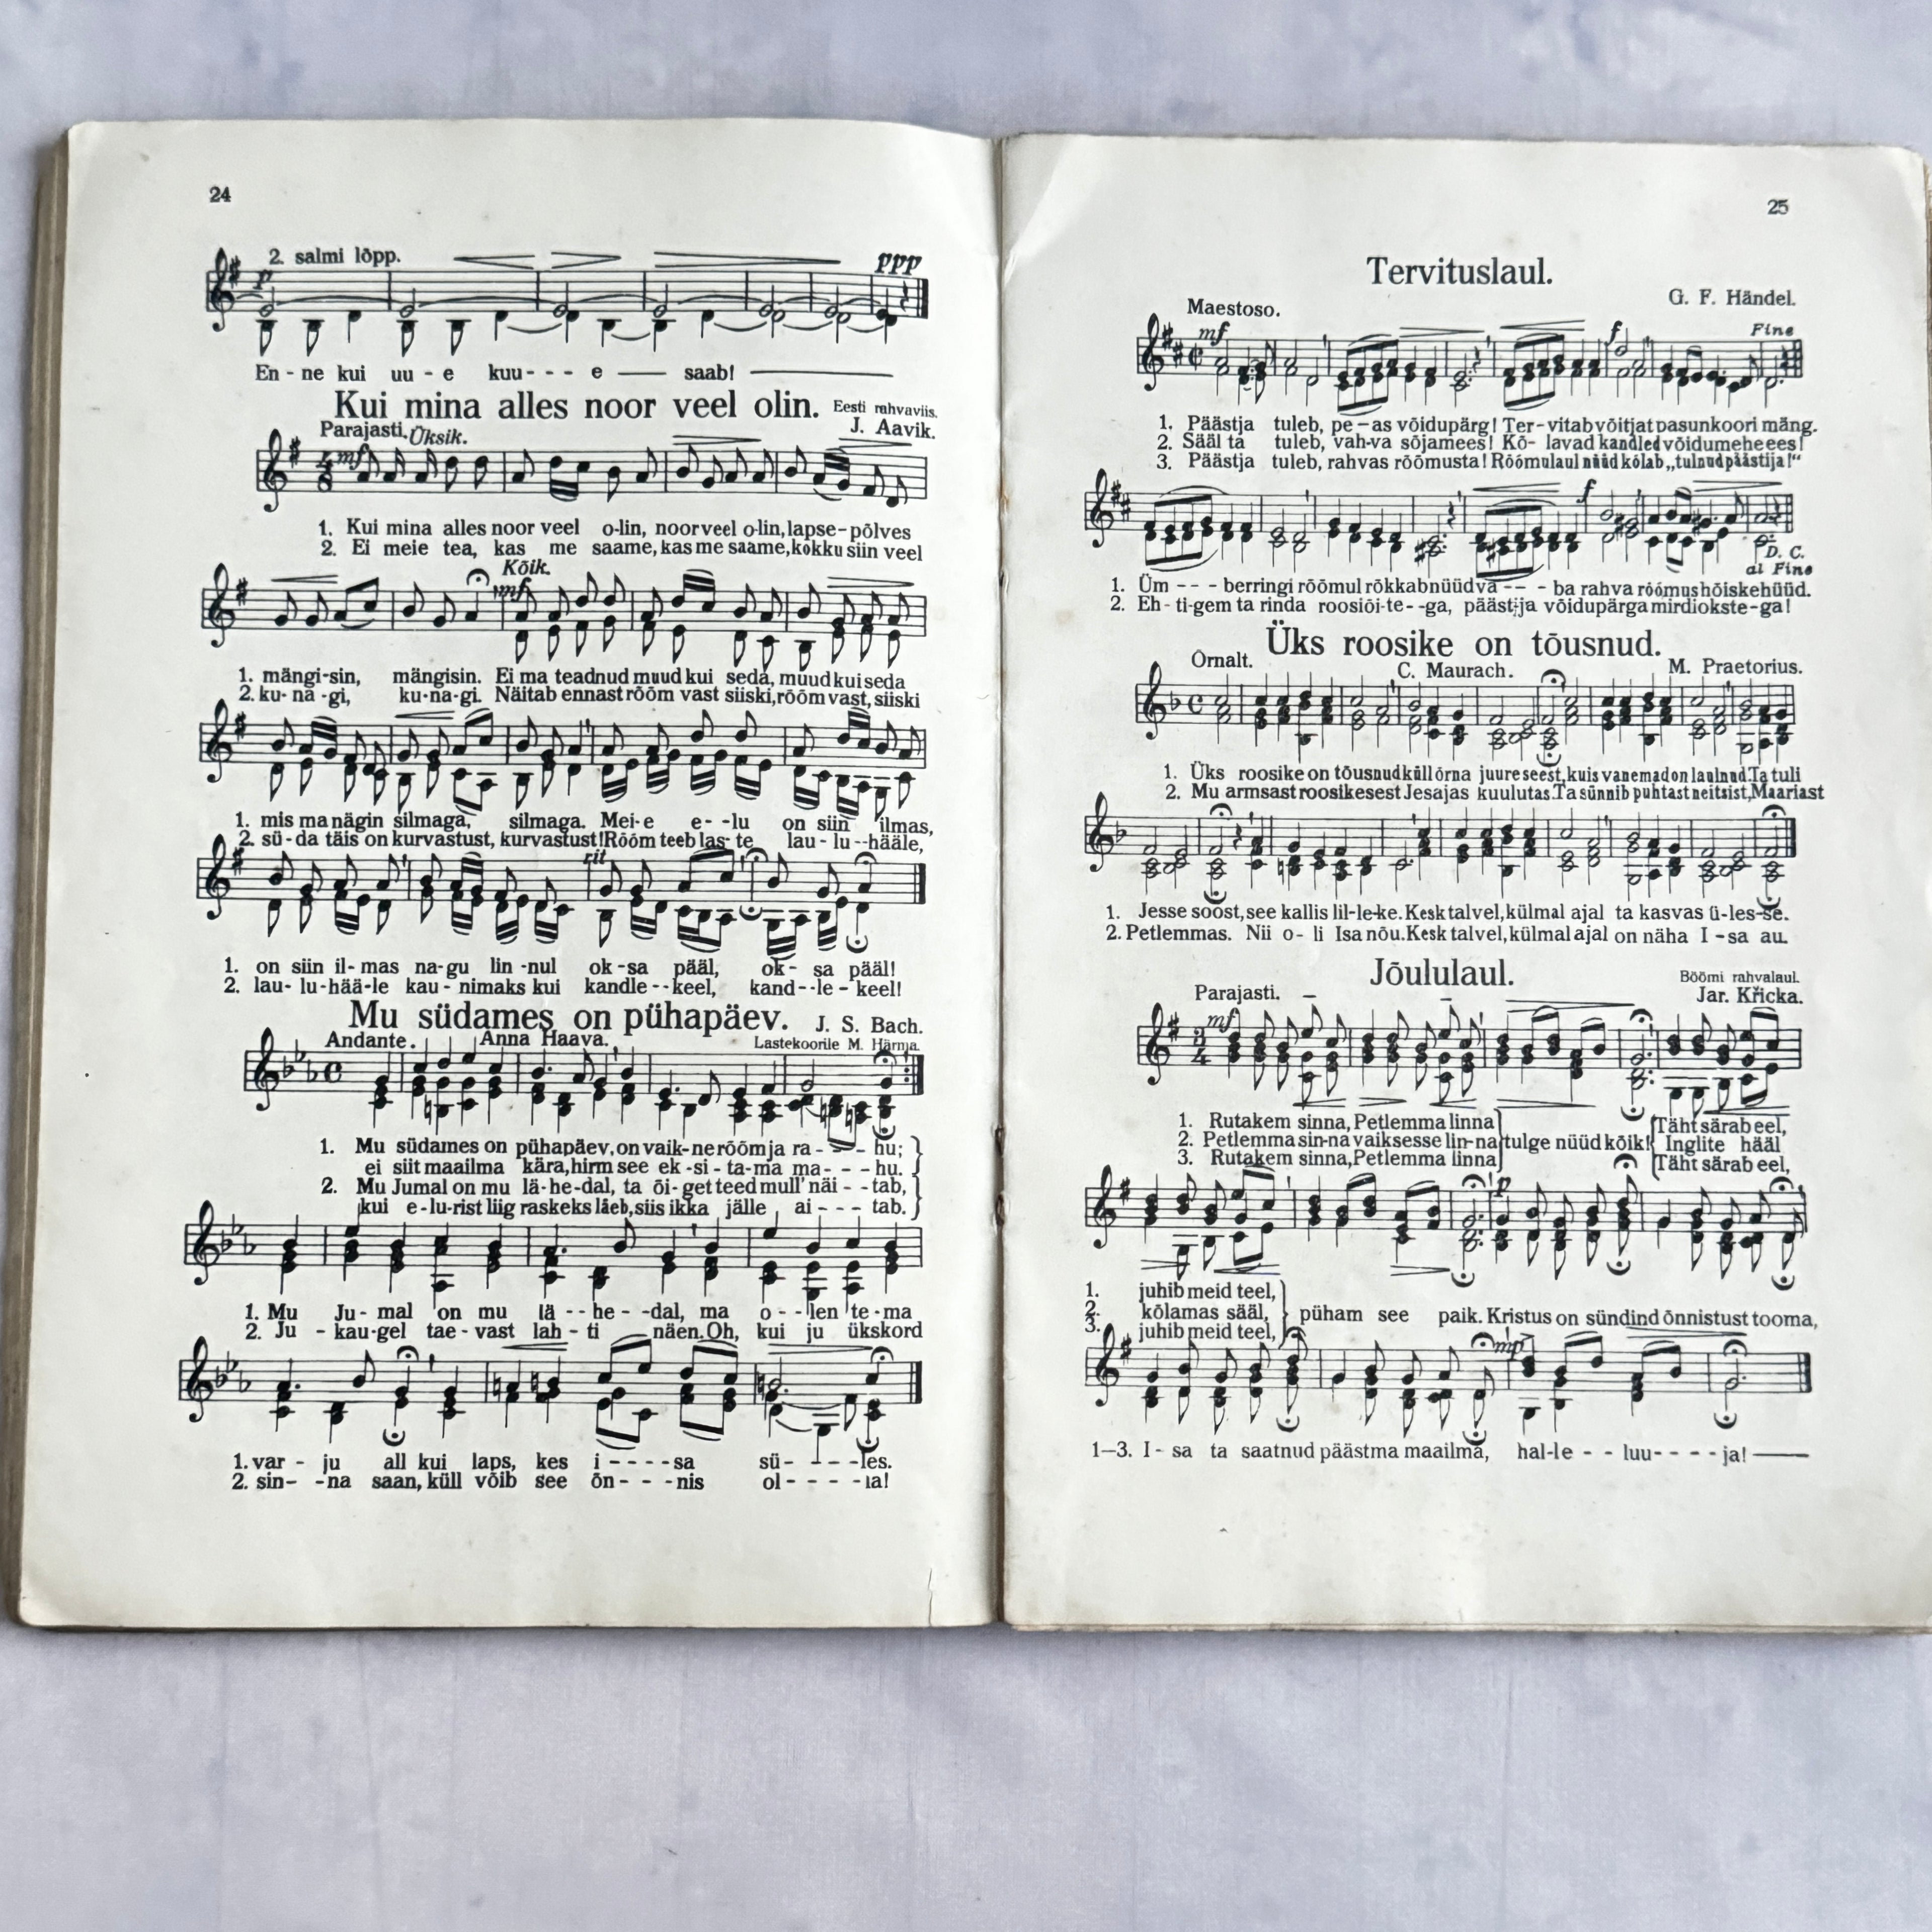 24
2. salmi lõpp.
p
ppp
En - ne kui uu - e kuu - - - e —— saab! ————
Kui mina alles noor veel olin.
Eesti rahvaviis.
J. Aavik.
Parajasti. Üksik.
mf
1. Kui mina alles noor veel o-lin, noor veel o-lin, lapse-põlves
2. Ei meie tea, kas me saame, kas me saame, kokku siin veel
Kõik.
mf
1. mängi-sin, mängisin. Ei ma teadnud muud kui seda, muud kui seda
2. ku-na-gi, ku-na-gi. Näitab ennast rõõm vast siiski, rõõm vast, siiski
1. mis ma nägin silmaga, silmaga. Mei-e e--lu on siin ilmas,
2. sü-da täis on kurvastust, kurvastust! Rõõm teeb las-te lau-lu--hääle,
rit
1. on siin il-mas na-gu lin-nul ok-sa pääl, ok- sa pääl!
2. lau-lu-hää-le kau-nimaks kui kandle--keel, kand--le-keel!
Mu südames on pühapäev.
J. S. Bach.
Andante. Anna Haava.
Lastekoorile M. Härma.
1. Mu südames on pühapäev, on vaik-ne rõõm ja ra - - - hu;
ei siit maailma kära, hirm see ek-si-ta-ma ma - - - hu.
2. Mu Jumal on mu lä-he-dal, ta õi-get teed mull' näi - - tab,
kui e-lu-rist liig raskeks läeb, siis ikka jälle ai - - - tab.
1. Mu Ju-mal on mu lä--he--dal, ma o--len te-ma
2. Ju-kau-gel tae-vast lah-ti näen. Oh, kui ju ükskord
1. var - ju all kui laps, kes i - - - - sa sü - - - - les.
2. sin- -na saan, küll võib see õn - - - nis ol - - - - la!
25
Tervituslaul.
G. F. Händel.
Maestoso.
mf
f
Fine
1. Päästja tuleb, pe-as võidupärg! Ter-vitab võitjat pasunkoori mäng.
2. Sääl ta tuleb, vah-va sõjamees! Kõ- lavad kandled võidumehe ees!
3. Päästja tuleb, rahvas rõõmusta! Rõõmulaul nüüd kõlab „tulnud päästija!“
f
D. C.
al Fine
1. Üm - - - berringi rõõmul rõkkab nüüd va - - - ba rahva rõõmus hõiskehüüd.
2. Eh-ti-gem ta rinda roosiõi-te--ga, päästja võidupärga mirdiokste-ga!
Üks roosike on tõusnud.
Õrnalt.
C. Maurach.
M. Praetorius.
1. Üks roosike on tõusnud küll õrna juure seest, kuis vanemad on laulnud. Ta tuli
2. Mu armsast roosikesest Jesajas kuulutas. Ta sünnib puhtast neitsist, Maariast
1. Jesse soost, see kallis lil-le-ke. Kesk talvel, külmal ajal ta kasvas ü-les-se.
2. Petlemmas. Nii o-li Isa nõu. Kesk talvel, külmal ajal on näha I-sa au.
Jõululaul.
Böömi rahvalaul.
Jar. Křicka.
Parajasti.
mf
1. Rutakem sinna, Petlemma linna
2. Petlemma sin-na vaiksesse lin-na tulge nüüd kõik!
3. Rutakem sinna, Petlemma linna
Täht särab eel,
Inglite hääl
Täht särab eel,
p
1. juhib meid teel,
2. kõlamas sääl, püham see paik. Kristus on sündind õnnistust tooma,
3. juhib meid teel,
mp
1—3. I-sa ta saatnud päästma maailma, hal-le - - luu - - - - ja! ——